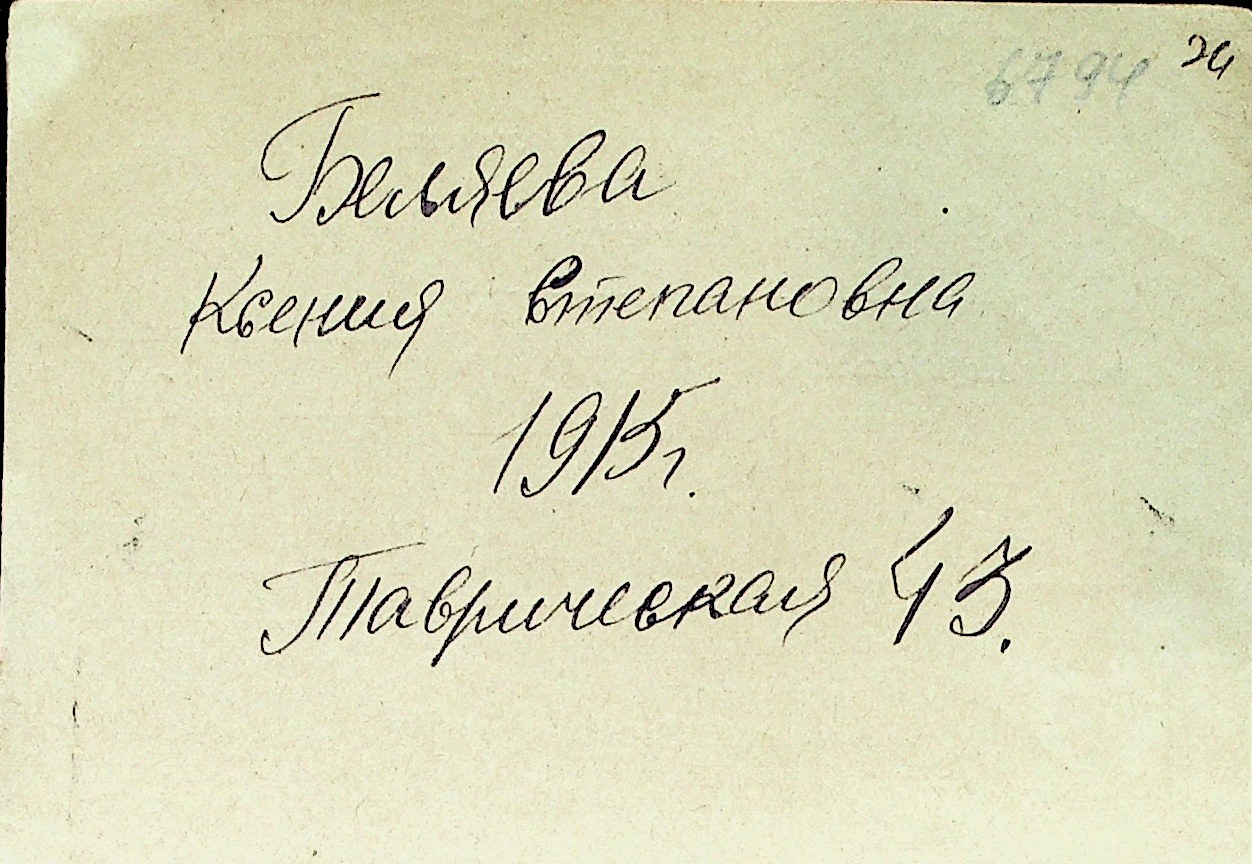 6794 24
Беляева
Ксения Степановна
1915г.
Таврическая 43.